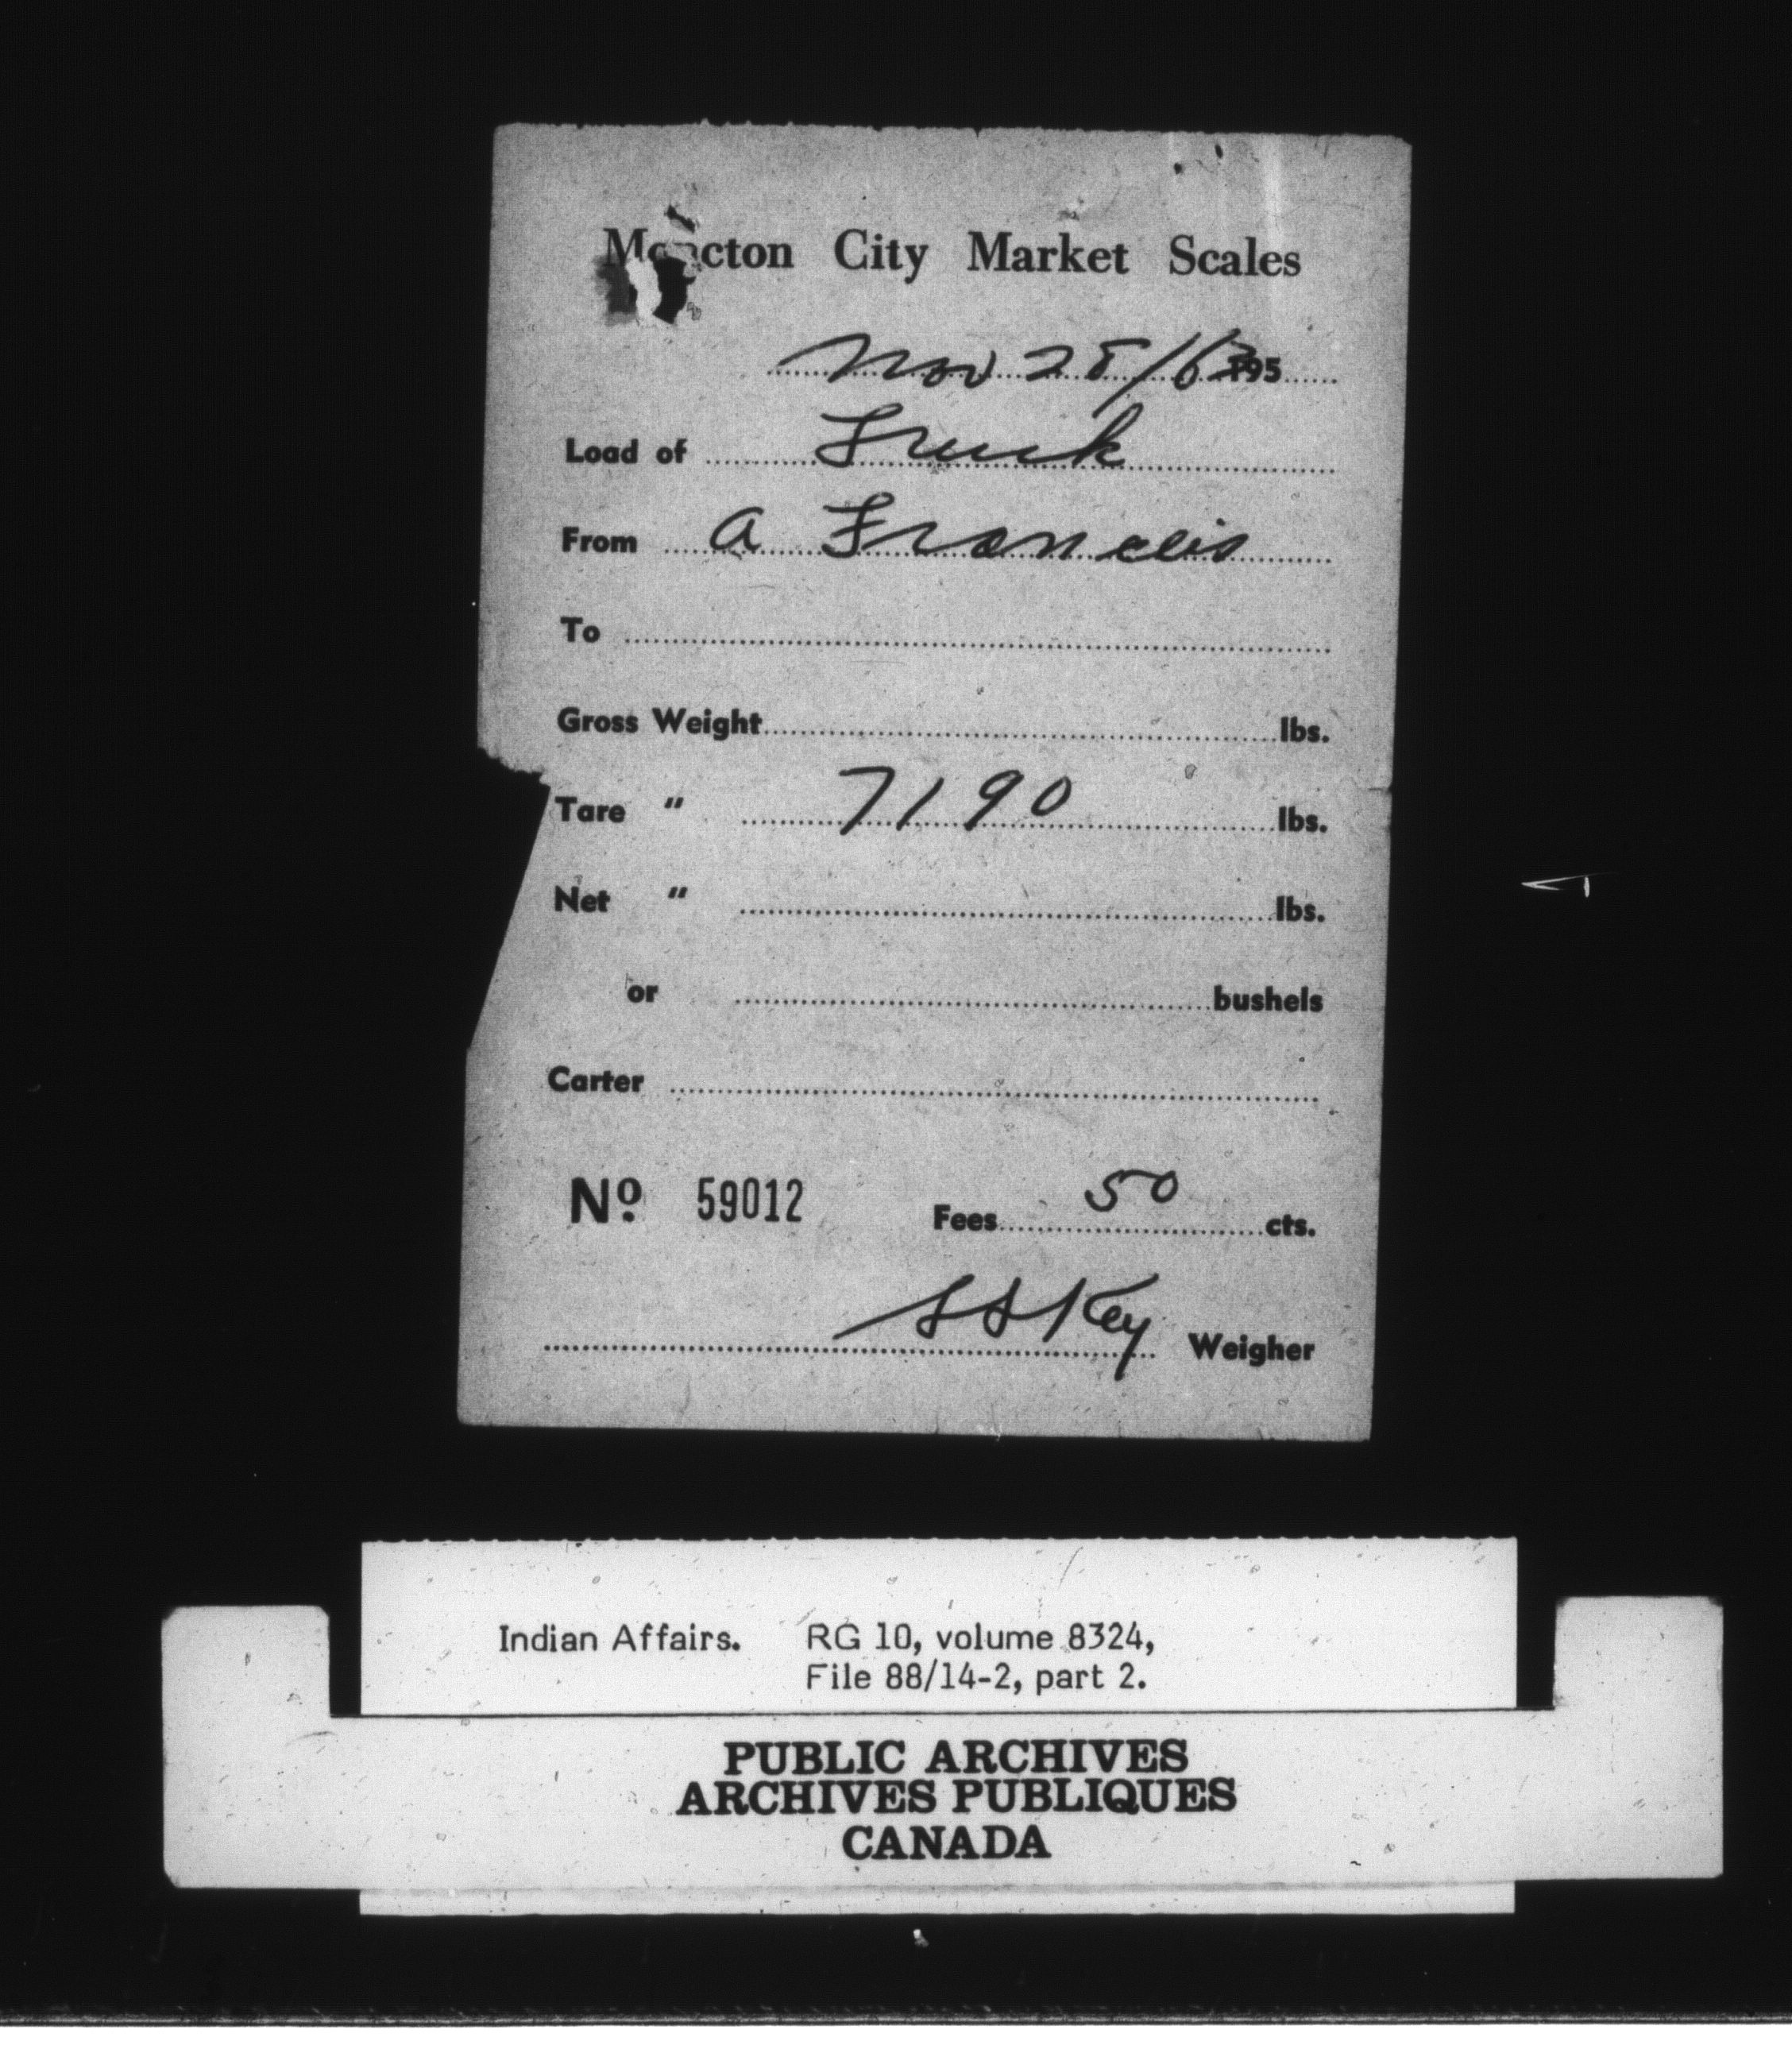 Moncton City Market Scales
Nov 28/63 195
Load of Truck
From A Francis
To
Gross Weight lbs.
Tare " 7190 lbs.
Net " lbs.
or bushels
Carter
Nº 59012 Fees 50 cts.
SS Key Weigher
Indian Affairs. RG 10, volume 8324,
File 88/14-2, part 2.
PUBLIC ARCHIVES
ARCHIVES PUBLIQUES
CANADA